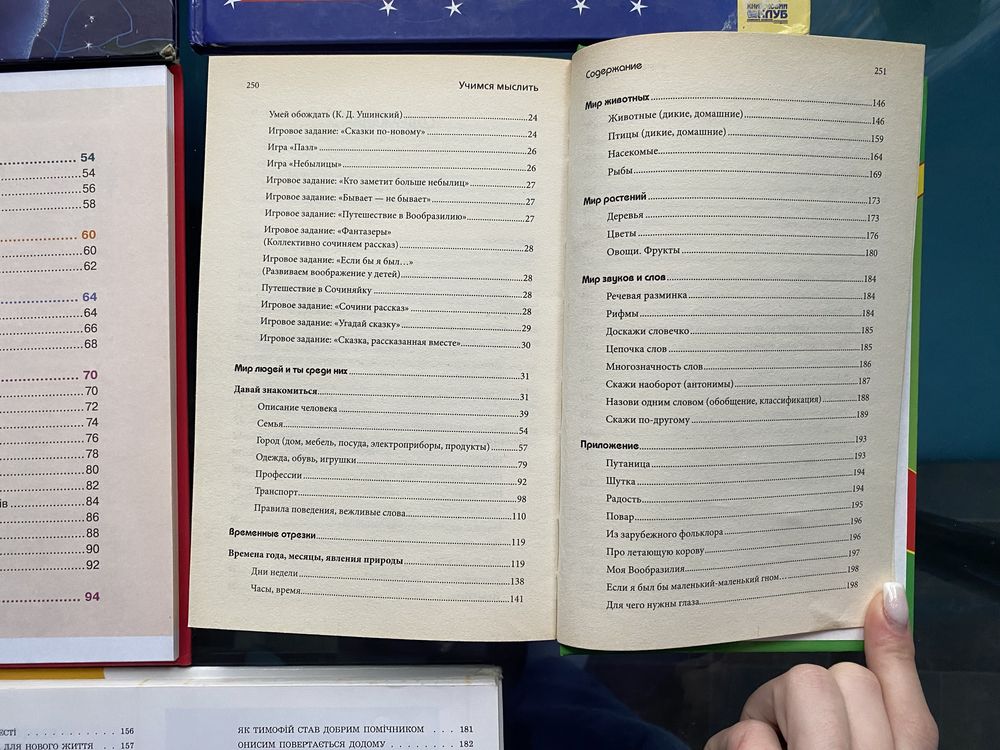 КНИЖКОВИЙ
КЛУБ
54
54
56
58
60
60
62
64
64
66
68
70
70
72
74
76
78
80
82
ів 84
86
88
90
92
94
250 Учимся мыслить
Умей обождать (К. Д. Ушинский) 24
Игровое задание: «Сказки по-новому» 24
Игра «Пазл» 26
Игра «Небылицы» 26
Игровое задание: «Кто заметит больше небылиц» 27
Игровое задание: «Бывает — не бывает» 27
Игровое задание: «Путешествие в Вообразилию» 27
Игровое задание: «Фантазеры»
(Коллективно сочиняем рассказ) 28
Игровое задание: «Если бы я был…»
(Развиваем воображение у детей) 28
Путешествие в Сочиняйку 28
Игровое задание: «Сочини рассказ» 28
Игровое задание: «Угадай сказку» 29
Игровое задание: «Сказка, рассказанная вместе» 30
Мир людей и ты среди них 31
Давай знакомиться 31
Описание человека 39
Семья 54
Город (дом, мебель, посуда, электроприборы, продукты) 57
Одежда, обувь, игрушки 79
Профессии 92
Транспорт 98
Правила поведения, вежливые слова 110
Временные отрезки 119
Времена года, месяцы, явления природы 119
Дни недели 138
Часы, время 141
Содержание 251
Мир животных 146
Животные (дикие, домашние) 146
Птицы (дикие, домашние) 159
Насекомые 164
Рыбы 169
Мир растений 173
Деревья 173
Цветы 176
Овощи. Фрукты 180
Мир звуков и слов 184
Речевая разминка 184
Рифмы 184
Доскажи словечко 185
Цепочка слов 185
Многозначность слов 186
Скажи наоборот (антонимы) 187
Назови одним словом (обобщение, классификация) 188
Скажи по-другому 189
Приложение 193
Путаница 193
Шутка 194
Радость 194
Повар 195
Из зарубежного фольклора 196
Про летающую корову 196
Моя Вообразилия 197
Если я был бы маленький-маленький гном… 198
Для чего нужны глаза 198
ЕСТІ 156
ДЛЯ НОВОГО ЖИТТЯ 157
ЯК ТИМОФІЙ СТАВ ДОБРИМ ПОМІЧНИКОМ 181
ОНИСИМ ПОВЕРТАЄТЬСЯ ДОДОМУ 182